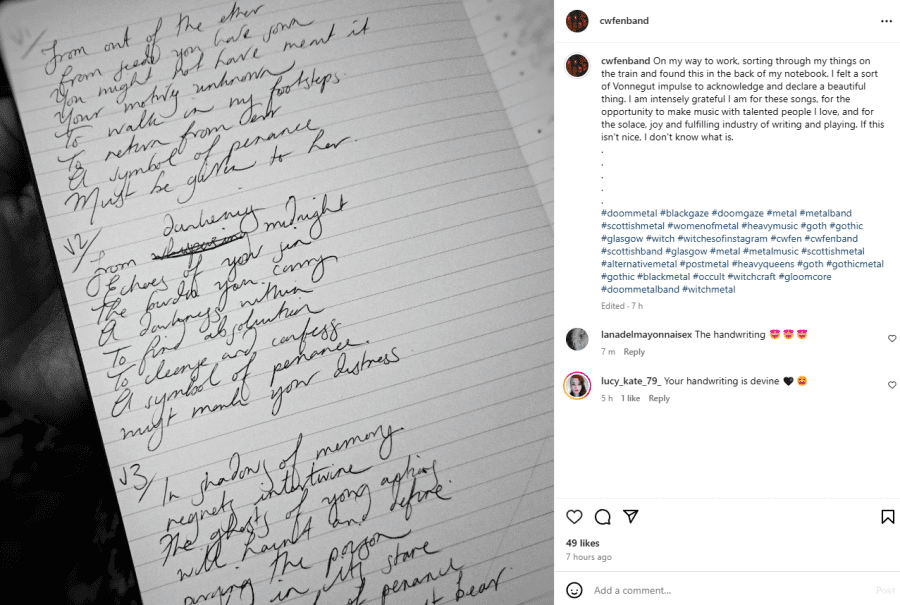 V1/
From out of the ether
From seeds you have sown
You might not have meant it
Your motives unknown
To walk in my footsteps.
To return from
A symbol of penance
Must be given to her
V2/
darkening
From midnight
Echoes of your sin
The burden you carry
A darkness within
To find absolution
To cleanse and confess.
A symbol of penance.
must mark your distress
V3/
In shadows of memory
regnets intertwine
The ghosts of your actions
will haunt and define.
the poison
in its stare
of penance
bear.
cwfenband
cwfenband On my way to work, sorting through my things on
the train and found this in the back of my notebook. I felt a sort
of Vonnegut impulse to acknowledge and declare a beautiful
thing. I am intensely grateful I am for these songs, for the
opportunity to make music with talented people I love, and for
the solace, joy and fulfilling industry of writing and playing. If this
isn't nice, I don't know what is.
.
.
.
.
.
#doommetal #blackgaze #doomgaze #metal #metalband
#scottishmetal #womenofmetal #heavymusic #goth #gothic
#glasgow #witch #witchesofinstagram #cwfen #cwfenband
#scottishband #glasgow #metal #metalmusic #scottishmetal
#alternativemetal #postmetal #heavyqueens #goth #gothicmetal
#gothic #blackmetal #occult #witchcraft #gloomcore
#doommetalband #witchmetal
Edited · 7 h
lanadelmayonnaisex The handwriting 😍😍😍
7 m Reply
lucy_kate_79_ Your handwriting is devine 🖤 🤩
5 h 1 like Reply
49 likes
7 hours ago
Add a comment...
Post